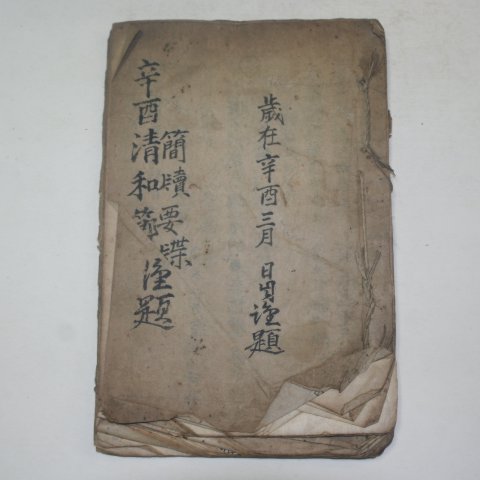 歲在辛酉三月 日 謹題
簡牘要㗼
辛酉清和 謹題